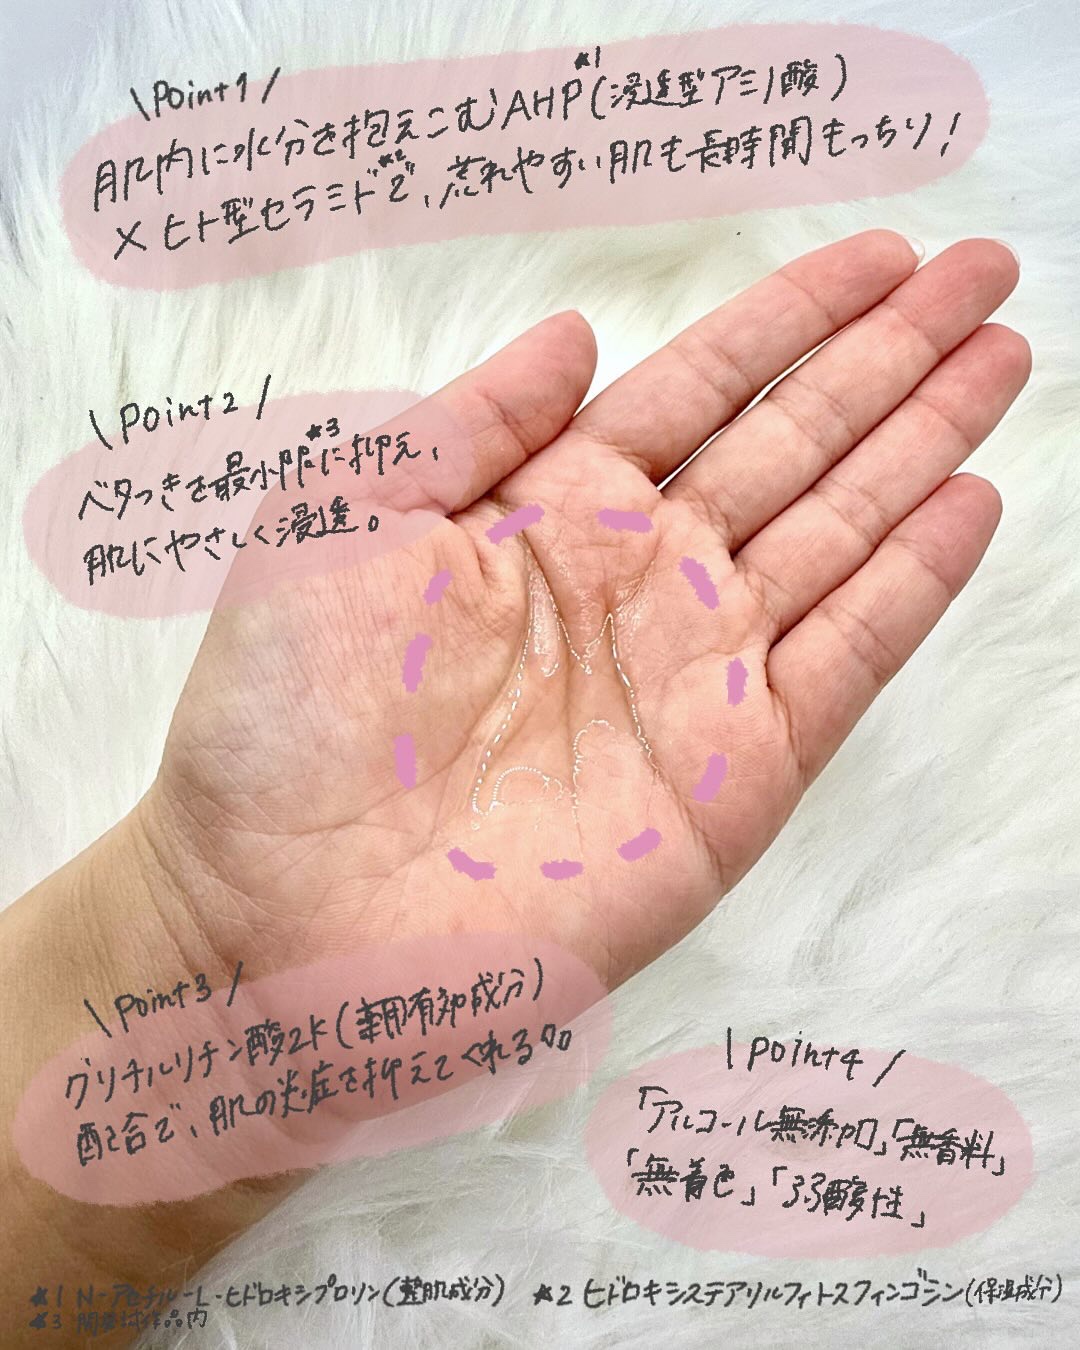 \Point1/
肌内に水分を抱えこむAHP★1(浸透型アミノ酸)
×ヒト型セラミド★2で、荒れやすい肌も長時間もっちり!
\Point2/
ベタつきを最小限★3に抑え、
肌にやさしく浸透。
\Point3/
グリチルリチン酸2K(薬用有効成分)
配合で、肌の炎症を抑えてくれる
\Point4/
「アルコール無添加」「無香料」
「無着色」「弱酸性」
★1 N-アセチル-L-ヒドロキシプロリン(整肌成分) ★2 ヒドロキシステアリルフィトスフィンゴシン(保湿成分)
★3 開発試作品内